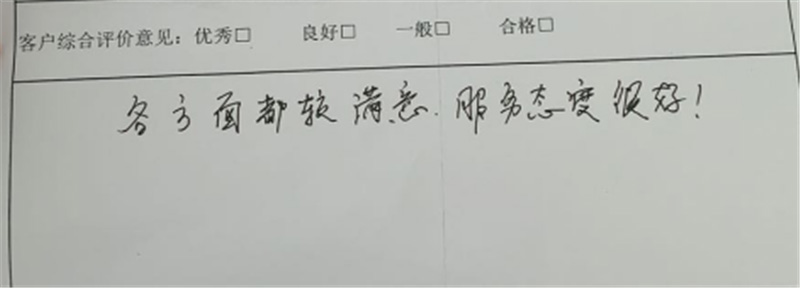 客户综合评价意见：优秀□ 良好□ 一般□ 合格□
各方面都较满意.服务态度很好！